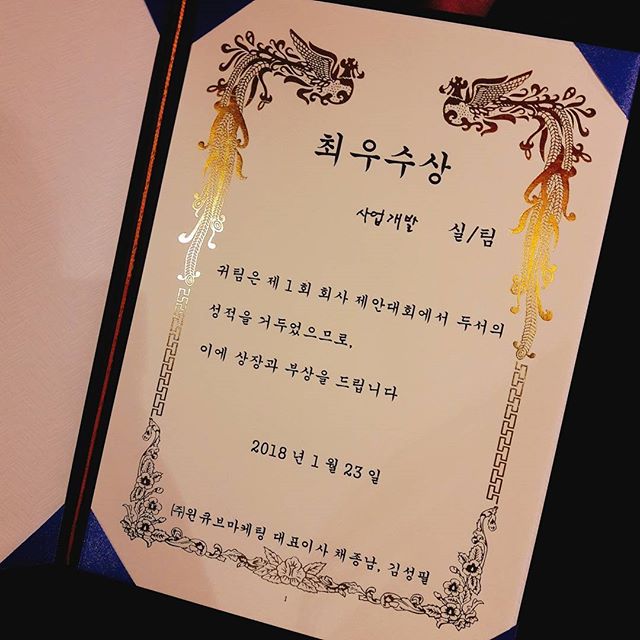 최우수상
사업개발 실/팀
귀팀은 제 1 회 회사 제안대회에서 두서의
성적을 거두었으므로,
이에 상장과 부상을 드립니다
2018 년 1 월 23 일
㈜원큐브마케팅 대표이사 채종남, 김성필
1